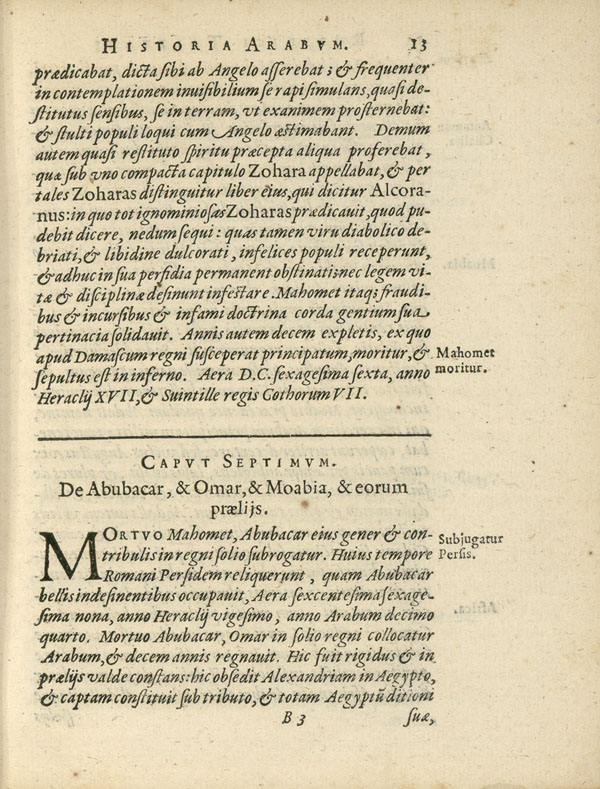 HISTORIA ARABVM. 13
prædicabat, dicta sibi ab Angelo asserebat; & frequenter
in contemplationem inuisibilium se rapi simulans, quasi de-
stitutus sensibus, se in terram, vt exanimem prosternebat:
& stulti populi loqui cum Angelo æstimabant. Demum
autem quasi restituto spiritu præcepta aliqua proferebat,
quæ sub vno compacta capitulo Zohara appellabat, & per
tales Zoharas distinguitur liber eius, qui dicitur Alcora-
nus: in quo tot ignominiosas Zoharas prædicauit, quod pu-
debit dicere, nedum sequi: quas tamen viru diabolico de-
briati, & libidine dulcorati, infelices populi receperunt,
& adhuc in sua perfidia permanent obstinatis nec legem vi-
tæ & disciplinæ desinunt infestare. Mahomet itaq; fraudi-
bus & incursibus & infami doctrina corda gentium sua
pertinacia solidauit. Annis autem decem expletis, ex quo
apud Damascum regni susceperat principatum, moritur, &
sepultus est in inferno. Aera D.C. sexagesima sexta, anno
Heraclij XVII, & Suintille regis Gothorum VII.
Mahomet
moritur.
CAPVT SEPTIMVM.
De Abubacar, & Omar, & Moabia, & eorum
prælijs.
MORTVO Mahomet, Abubacar eius gener & con-
tribulis in regni solio subrogatur. Huius tempore
Romani Persidem reliquerunt, quam Abubacar
bellis indesinentibus occupauit, Aera sexcentesima sexage-
sima nona, anno Heraclij vigesimo, anno Arabum decimo
quarto. Mortuo Abubacar, Omar in solio regni collocatur
Arabum, & decem annis regnauit. Hic fuit rigidus & in
prælijs valde constans: hic obsedit Alexandriam in Aegypto,
& captam constituit sub tributo, & totam Aegyptū ditioni
Subjugatur
Persis.
B 3 suæ,